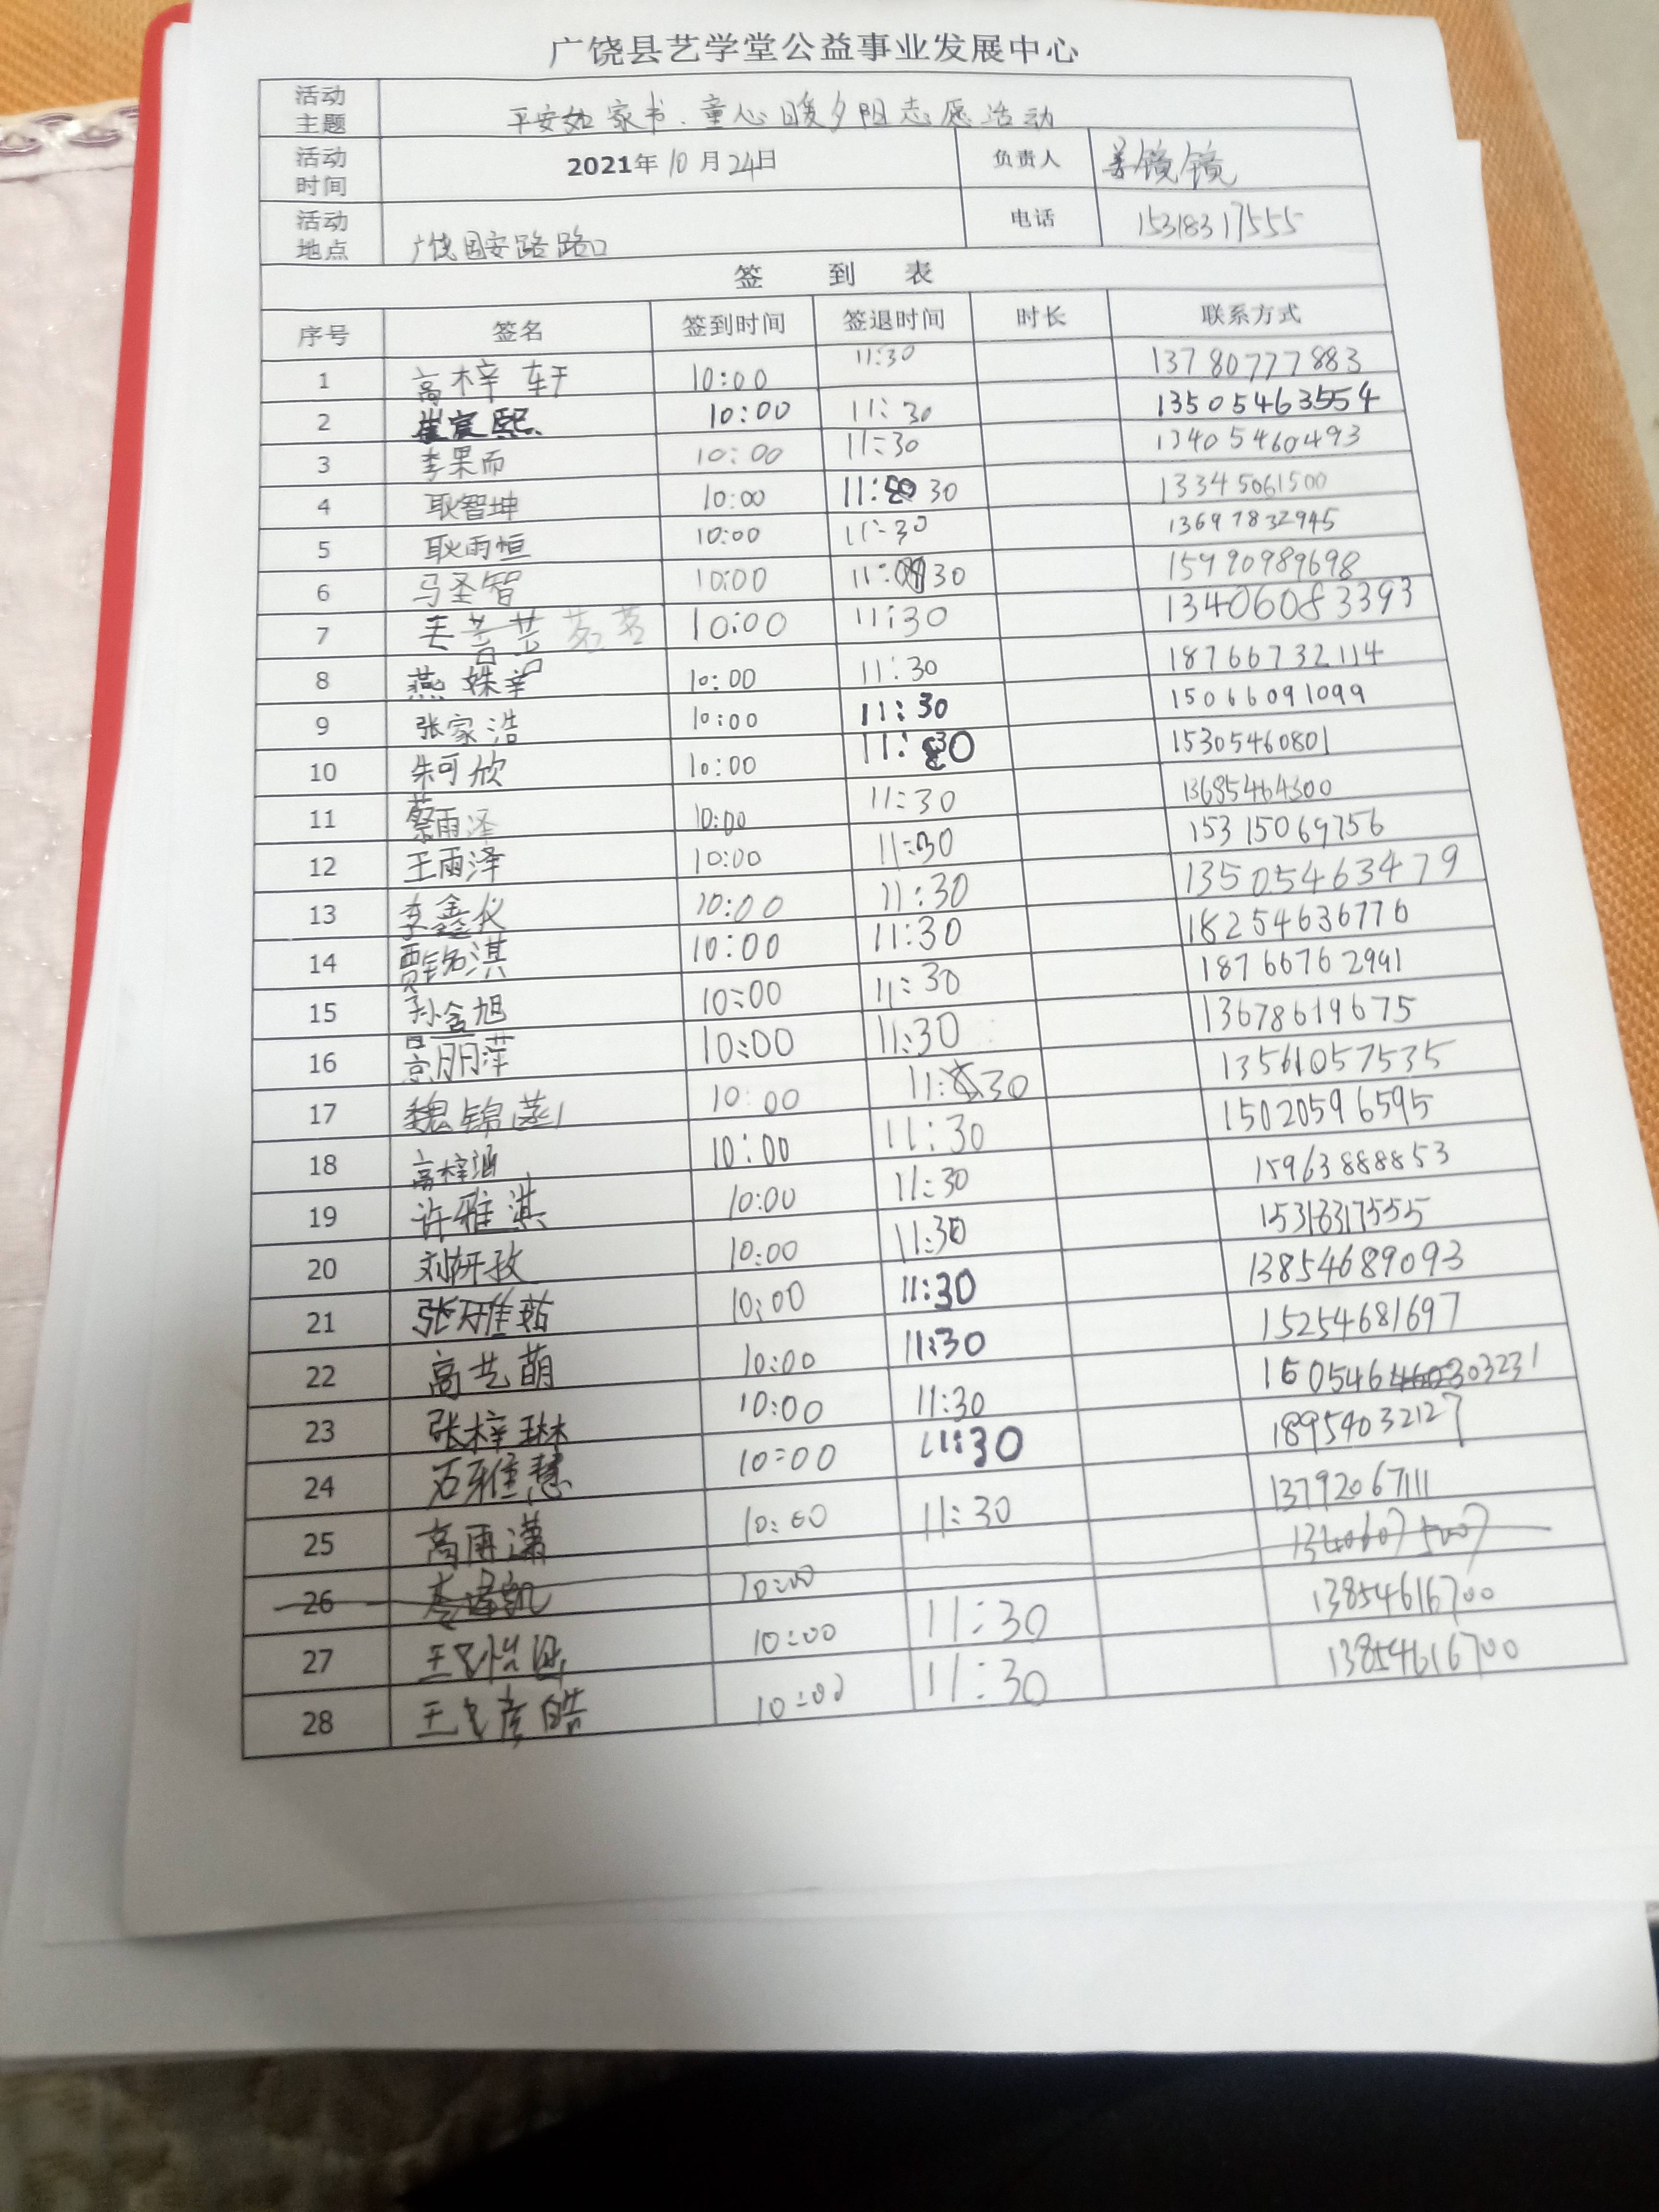 广饶县艺学堂公益事业发展中心
活动主题 平安如家书、童心暖夕阳志愿活动
活动时间 2021年10月24日 负责人 镜镜
活动地点 广饶国安路路口 电话 15318317555
签 到 表
序号 签名 签到时间 签退时间 时长 联系方式
1 高梓轩 10:00 11:30 13780777883
2 崔宸熙 10:00 11:30 13505463554
3 李果而 10:00 11:30 13405460493
4 耿智坤 10:00 11:30 13345061500
5 耿雨恒 10:00 11:30 13697832945
6 马圣智 10:00 11:30 15990989698
7 10:00 11:30 13406083393
8 燕姝 10:00 11:30 18766732114
9 张家浩 10:00 11:30 15066091099
10 朱可欣 10:00 11:30 15305460801
11 蔡雨泽 10:00 11:30 13685464300
12 王雨泽 10:00 11:30 15315069756
13 李鑫仪 10:00 11:30 13505463479
14 贾铭淇 10:00 11:30 18254636776
15 孙含旭 10:00 11:30 18766762991
16 11:30 10:00 13678619675
17 魏锦 10:00 11:30 13561057535
18 高梓涵 10:00 11:30 15020596595
19 许雅淇 10:00 11:30 15963888853
20 刘妍孜 10:00 11:30 15318317555
21 张雅茹 10:00 11:30 13854689093
22 高艺萌 10:00 11:30 15254681697
23 张梓琳 10:00 11:30
24 石雅慧 10:00 11:30 18954032127
25 高雨潇 10:00 11:30 13792067111
26 10:00 13406075007
27 10:00 11:30 13854616700
28 王彦皓 10:00 11:30 13854616700